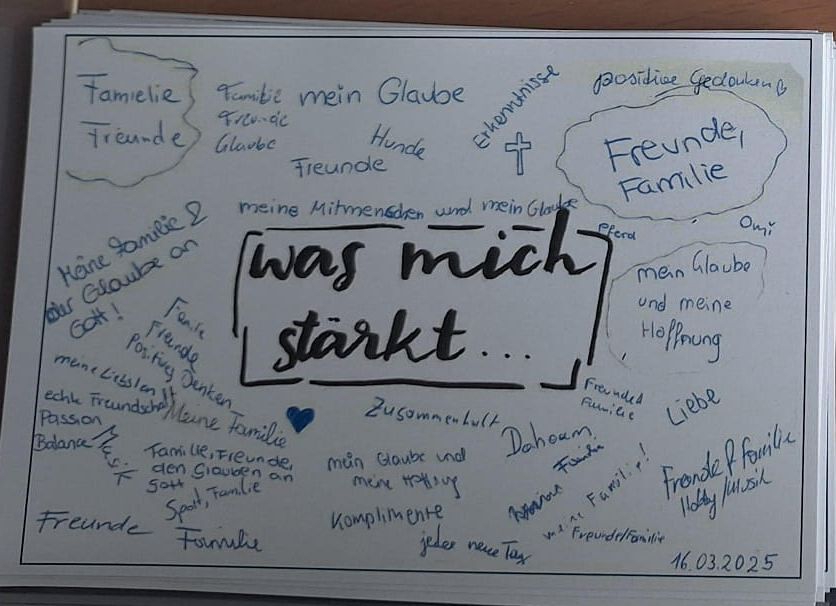 Famielie
Freunde
Familie
Freunde
Glaube
mein Glaube
Hunde
Freunde
Erkenntnisse
positive Gedanken
Freunde,
Familie
meine Mitmenschen und mein Glaube
Pferd
Omi
Meine Familie &
der Glaube an
Gott!
was mich
stärkt...
mein Glaube
und meine
Hoffnung
Familie
Freunde
Positives Denken
meine Liebsten
echte Freundschaft
Passion
Balance
Musik
Meine Familie
Familie, Freunde,
den Glauben an
Gott
Sport, Familie
Freunde
Familie
Zusammenhalt
mein Glaube und
meine Hoffnung
Komplimente
jeder neue Tag
Dahoam
Familie
meine Familie!
Freunde/Familie
Freunde &
Familie
Liebe
Freunde & Familie
Hobby/Musik
16.03.2025